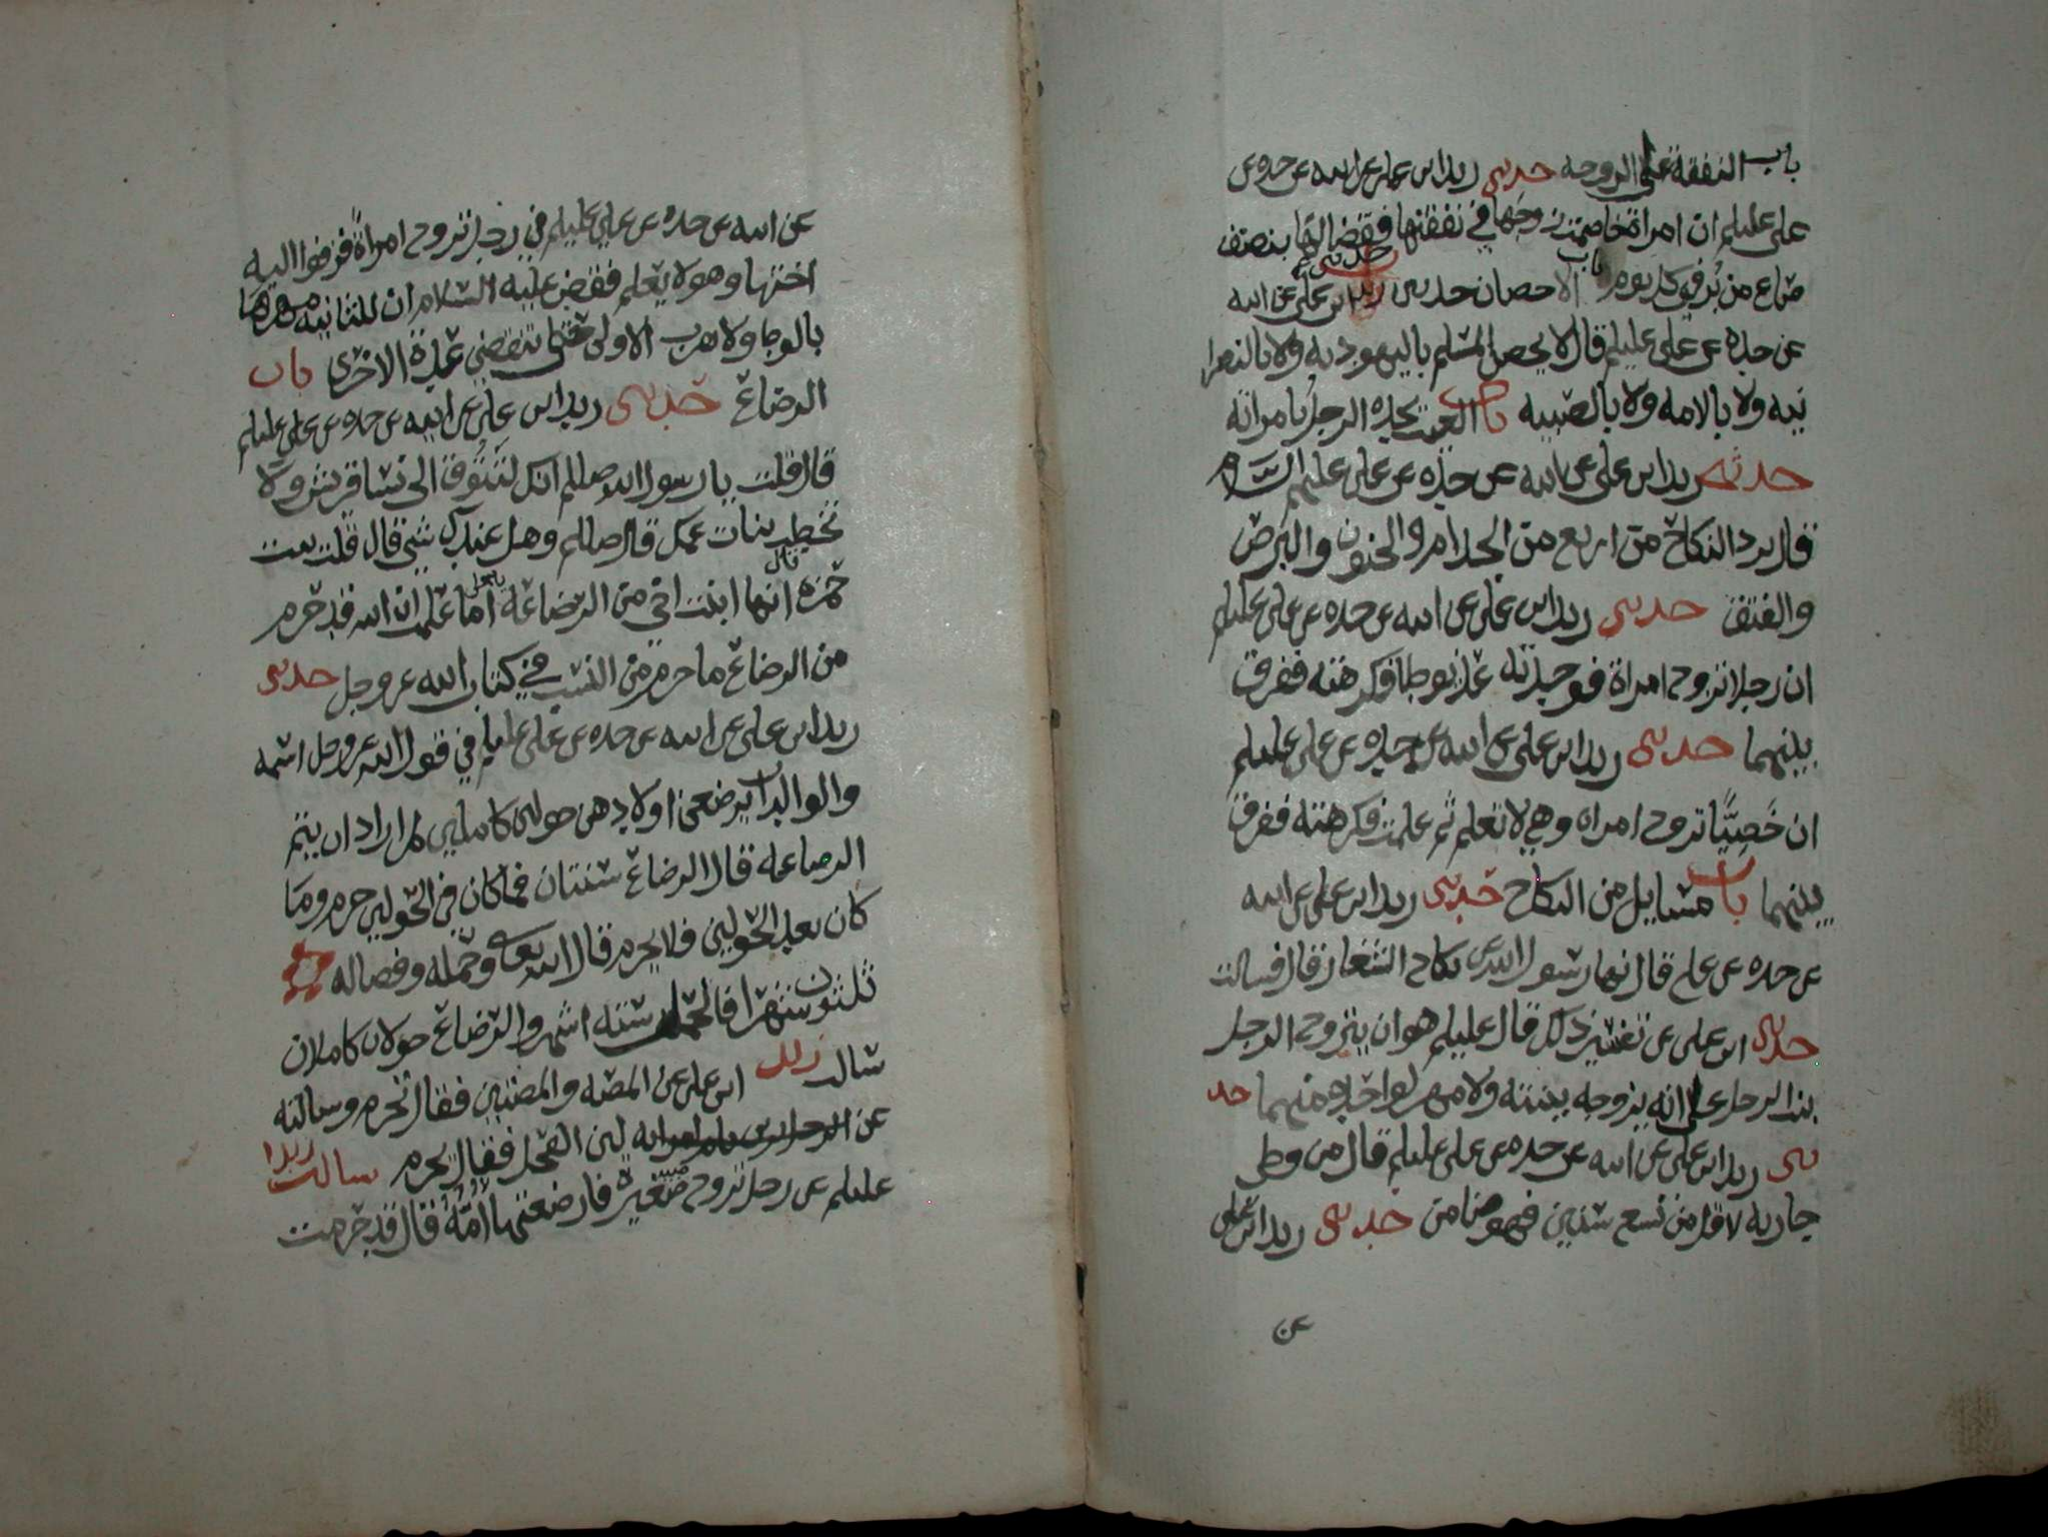 باب النفقة على الزوجه حدثني زيد ابن علي عن ابيه عن جده عن
علي عليلم ان امراة خاصمت زوجها في نفقتها فقضا لها بنصف
صاع من بر في كل يوم باب الاحصان حدثني زيد ابن علي عن ابيه
عن جده عن علي عليلم قال لا يحصن المسلم باليهوديه ولا بالنصرا
نيه ولا بالامه ولا بالصبيه باب العيب يجده الرجل بامراته
حدثني زيد ابن علي عن ابيه عن جده عن علي عليهم السلام
قال يرد النكاح من اربع من الجذام والجنون والبرص
والفتق حدثني زيد ابن علي عن ابيه عن جده عن علي عليلم
ان رجلا تزوج امراة فوجدته عذيوطا فكرهته ففرق
بينهما حدثني زيد ابن علي عن ابيه عن جده عن علي عليلم
ان خصيًّا تزوج امراه وهي لا تعلم ثم علمت فكرهته ففرق
بينهما باب مسايل من النكاح حدثني زيد ابن علي عن ابيه
عن جده عن علي قال نها رسول الله عن نكاح الشغار قال فسالت
ابن علي عن تفسير ذلك قال عليلم هو ان يتزوج الرجل
بنت الرجل على انه يزوجه بنته ولا مهر لواحده منهما حد
ثني زيد ابن علي عن ابيه عن جده عن علي عليلم قال من وطى
جاريه لاقل من تسع سنين فهو ضامن حدثني زيد ابن علي
عن
عن ابيه عن جده عن علي عليلم في رجل تزوج امراةً فزفوا اليه
اختها وهو لا يعلم فقضى عليه السلام ان للثانيه مهرها
بالوطا ولا يقرب الاولى حتى تنقضي عدة الاخرى باب
الرضاع حدثني زيد ابن علي عن ابيه عن جده عن علي عليلم
قال قلت يا رسول الله صللم انك لتتوق الى نسا قريش ولا
تخطب بنات عمك قال صللم وهل عندك شي قال قلت بنت
حمزه قال انها ابنت اخي من الرضاعة اما علمت ان الله قد حرم
من الرضاع ما حرم من النسب في كتاب الله عز وجل حدثني
زيد ابن علي عن ابيه عن جده عن علي عليلم في قول الله عز وجل اسمه
والوالدات يرضعن اولادهن حولين كاملين لمن اراد ان يتم
الرضاعه قال الرضاع سنتان فما كان في الحولين حرم وما
كان بعد الحولين فلا يحرم قال الله تعالى وحمله وفصاله
ثلثون شهرا فالحمل سته اشهر والرضاع حولان كاملان
سالت زيد ابن علي عن المصه والمصتين فقال تحرم وسالته
عن لبن الفحل فقال يحرم سالت زيدا
عليلم عن رجل تزوج صغيرة فارضعتها امُّه قال قد حرمت